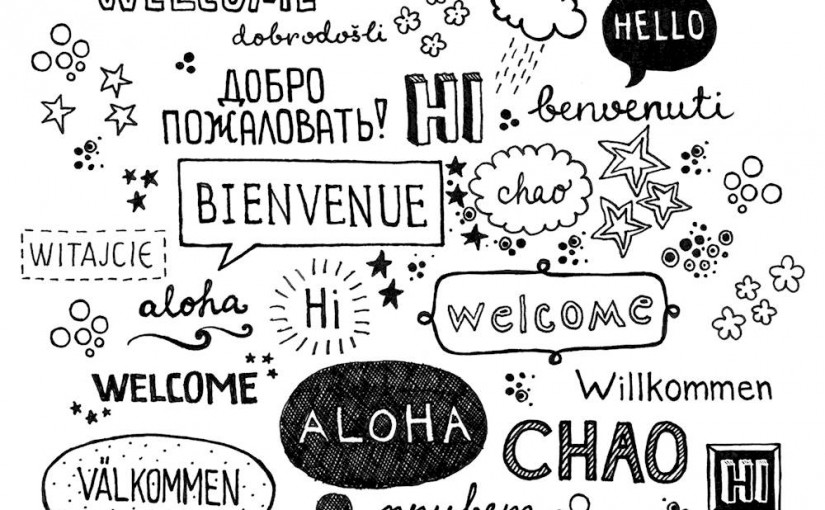 WELCOME
dobrodošli
HELLO
ДОБРО
ПОЖАЛОВАТЬ!
HI
benvenuti
BIENVENUE
chao
WITAJCIE
aloha
Hi
welcome
WELCOME
ALOHA
Willkommen
CHAO
VÄLKOMMEN
HI